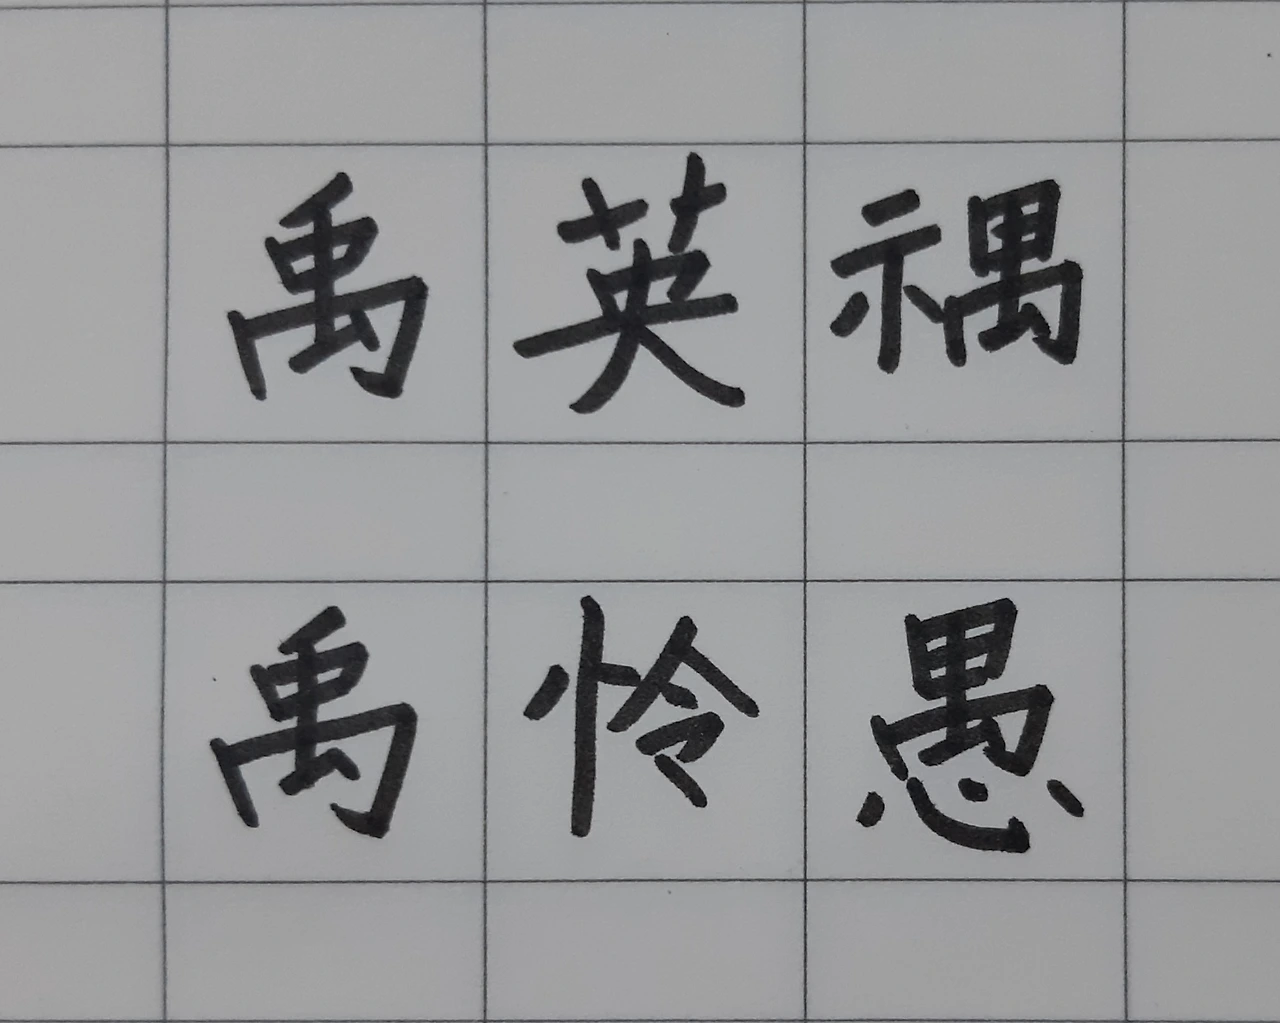 禹英禑
禹怜愚